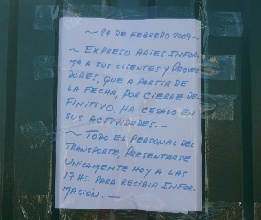 ~ 24 DE FEBRERO 2009 ~
~ EXPRESO ARIES INFOR-
MA A SUS CLIENTES Y PROVEE
DORES, QUE A PARTIR DE
LA FECHA, POR CIERRE DE-
FINITIVO, HA CESADO EN
SUS ACTIVIDADES. -
~ TODO EL PERSONAL DEL
TRANSPORTE, PRESENTARSE
UNICAMENTE HOY A LAS
17 HS. PARA RECIBIR INFOR-
MACION. -